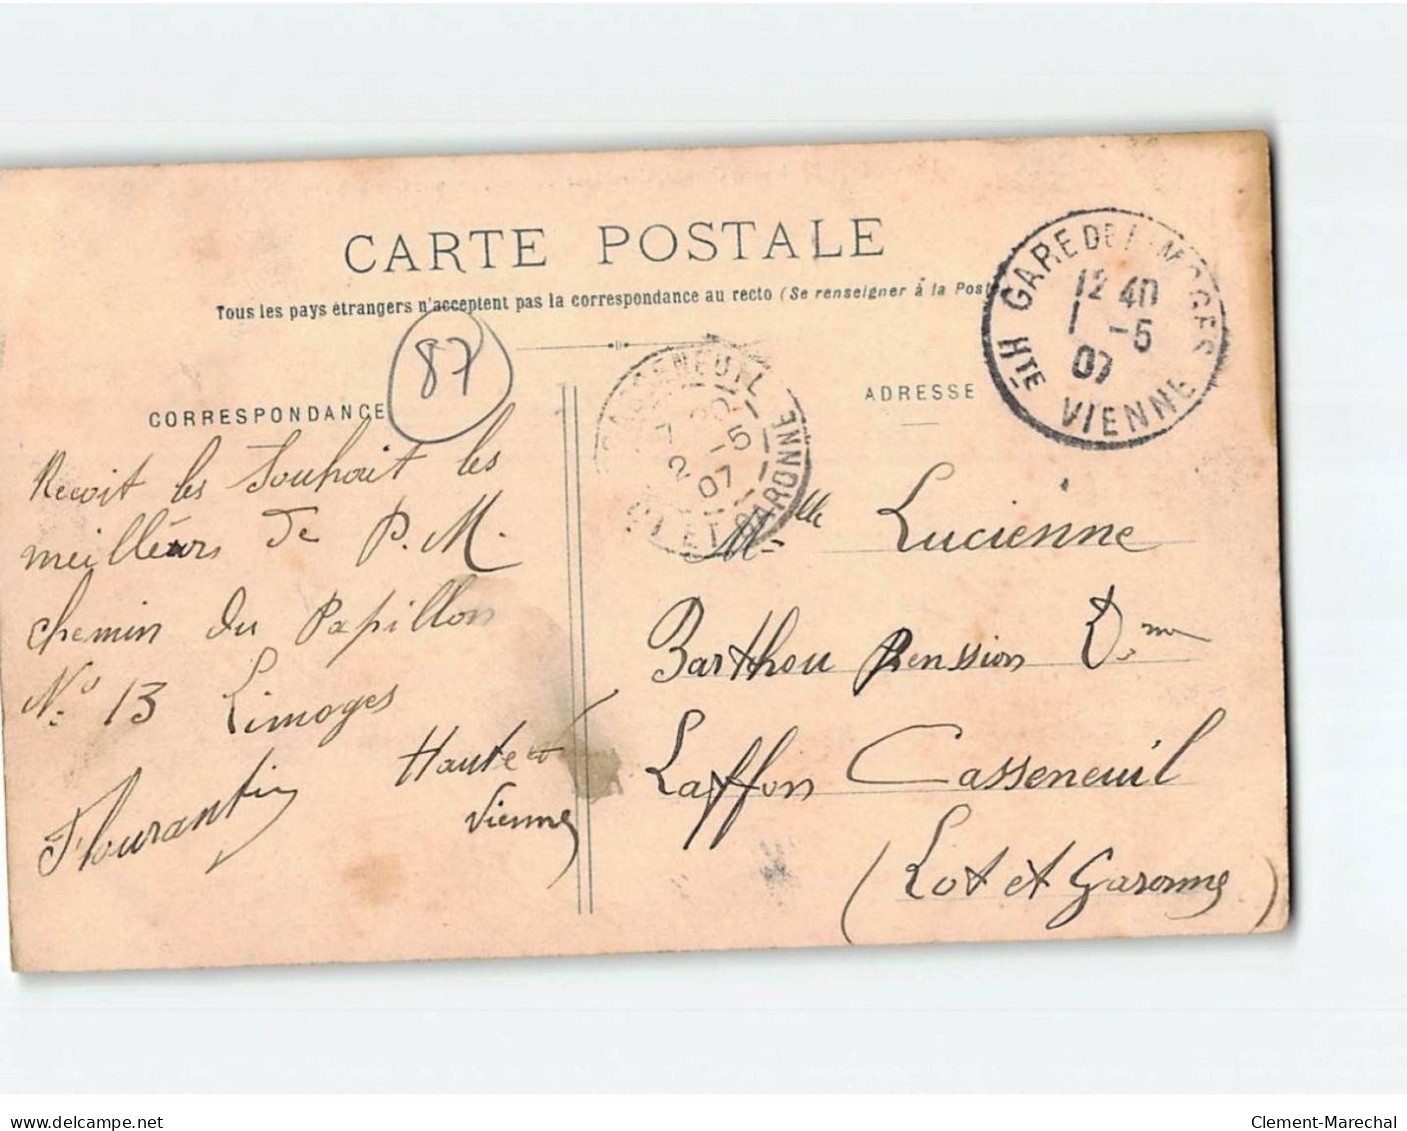 CARTE POSTALE
Tous les pays étrangers n'acceptent pas la correspondance au recto (Se renseigner à la Post
87
CORRESPONDANCE
ADRESSE
GARE DE LIMOGES
12 40
1 -5
07
HTE VIENNE
CASSENEUIL
7 20
2 -5
07
LOT ET GARONNE
Recoit les Souhait les
meilleurs de P. M.
chemin du Papillon
No 13 Limoges
Haute
Vienne
Flourantin
Mlle Lucienne
Barthou Penssion Dme
Laffon Casseneuil
(Lot et Garonne)
delcampe.net
Clement-Marechal